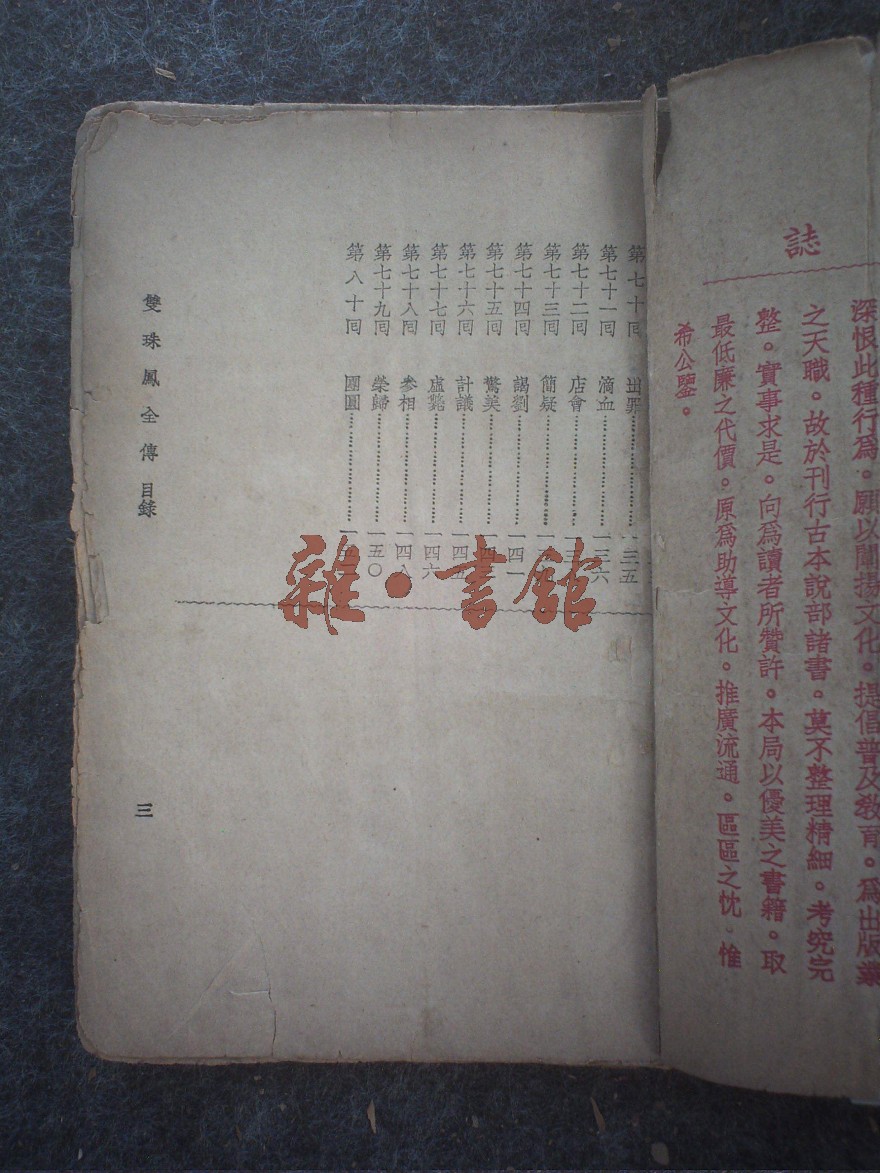 誌
深恨此種行爲。願以闡揚文化。提倡普及敎育。爲出版業
之天職。故於刊行古本說部諸書。莫不整理精細。考究完
整。實事求是。向爲讀者所贊許。本局以優美之書籍。取
最低廉之代價。原爲助導文化。推廣流通。區區之忱。惟
希公鑒。
第七十回 出罪 一三五
第七十一回 滴血 一三六
第七十二回 店會
第七十三回 簡疑
第七十四回 謁劉 一四一
第七十五回 驚美
第七十六回 計議
第七十七回 虛 一四六
第七十八回 參相 一四八
第七十九回 榮歸 一五〇
第八十回 團圓
雙珠鳳全傳 目錄
三
雜·書館